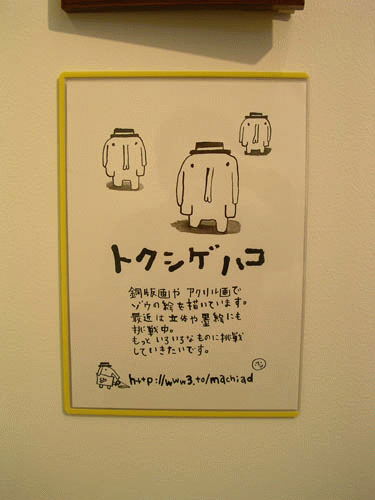 トクシゲハコ
銅版画や アクリル画で
ゾウの絵を描いています。
最近は立体や墨絵にも
挑戦中。
もっといろいろなものに挑戦
していきたいです。
http://www3.to/machiad